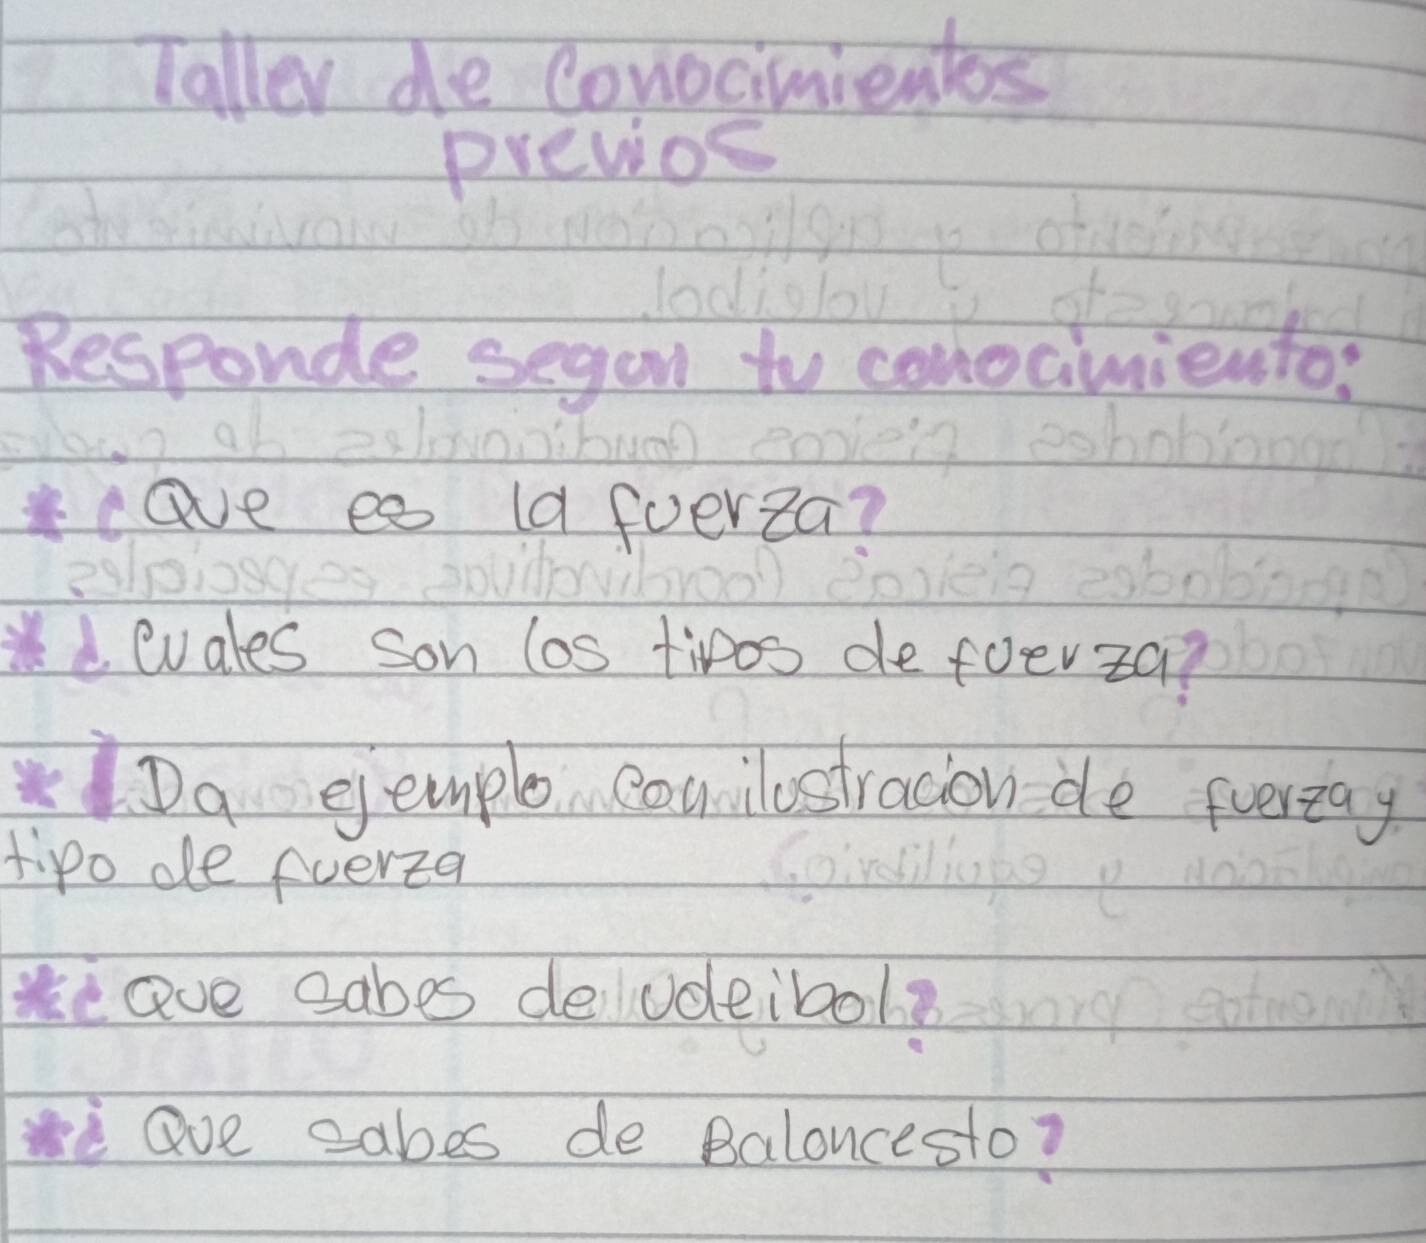 Taller de Conocimientos
previos
Responde segun tu conocimiento:
* ¿Que es la fuerza?
* ¿Cuales son los tipos de fuerza?
* Da ejemplo con ilustracion de fuerza y
tipo de fuerza
* ¿Que sabes de voleibol?
* ¿Que sabes de Baloncesto?